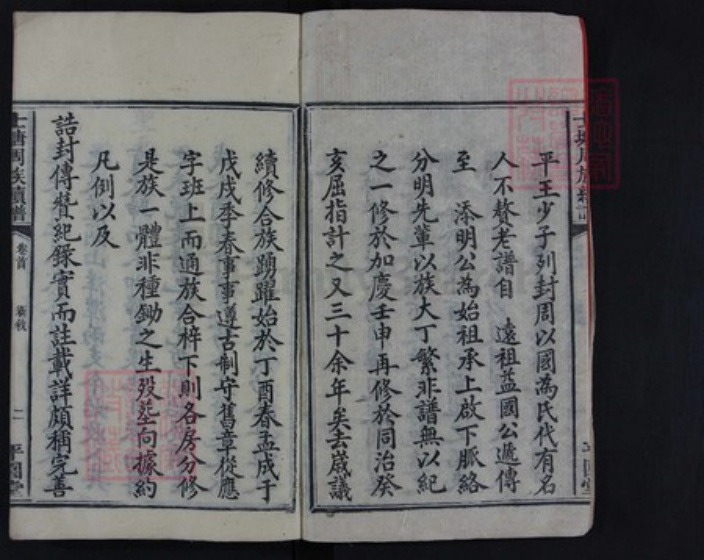 平王少子列封周以國為氏代有名
人不聱老譜自　遠祖益國公遞傳
至　添明公為始祖承上啟下脈絡
分明先輩以族大丁繁非譜無以紀
之一修於加慶壬申再修於同治癸
亥屈指計之又三十余年矣去歲議
續修合族踴躍始於丁酉春孟成于
戊戌季春事事遵古制守舊章從應
字班上而通族合梓下則各房分修
是族一體非種鋤之生歿塟向據約
凡例以及
誥封傳贊紀錄實而註載詳頗稱完善
士塘周族續譜
卷首
二
平園堂